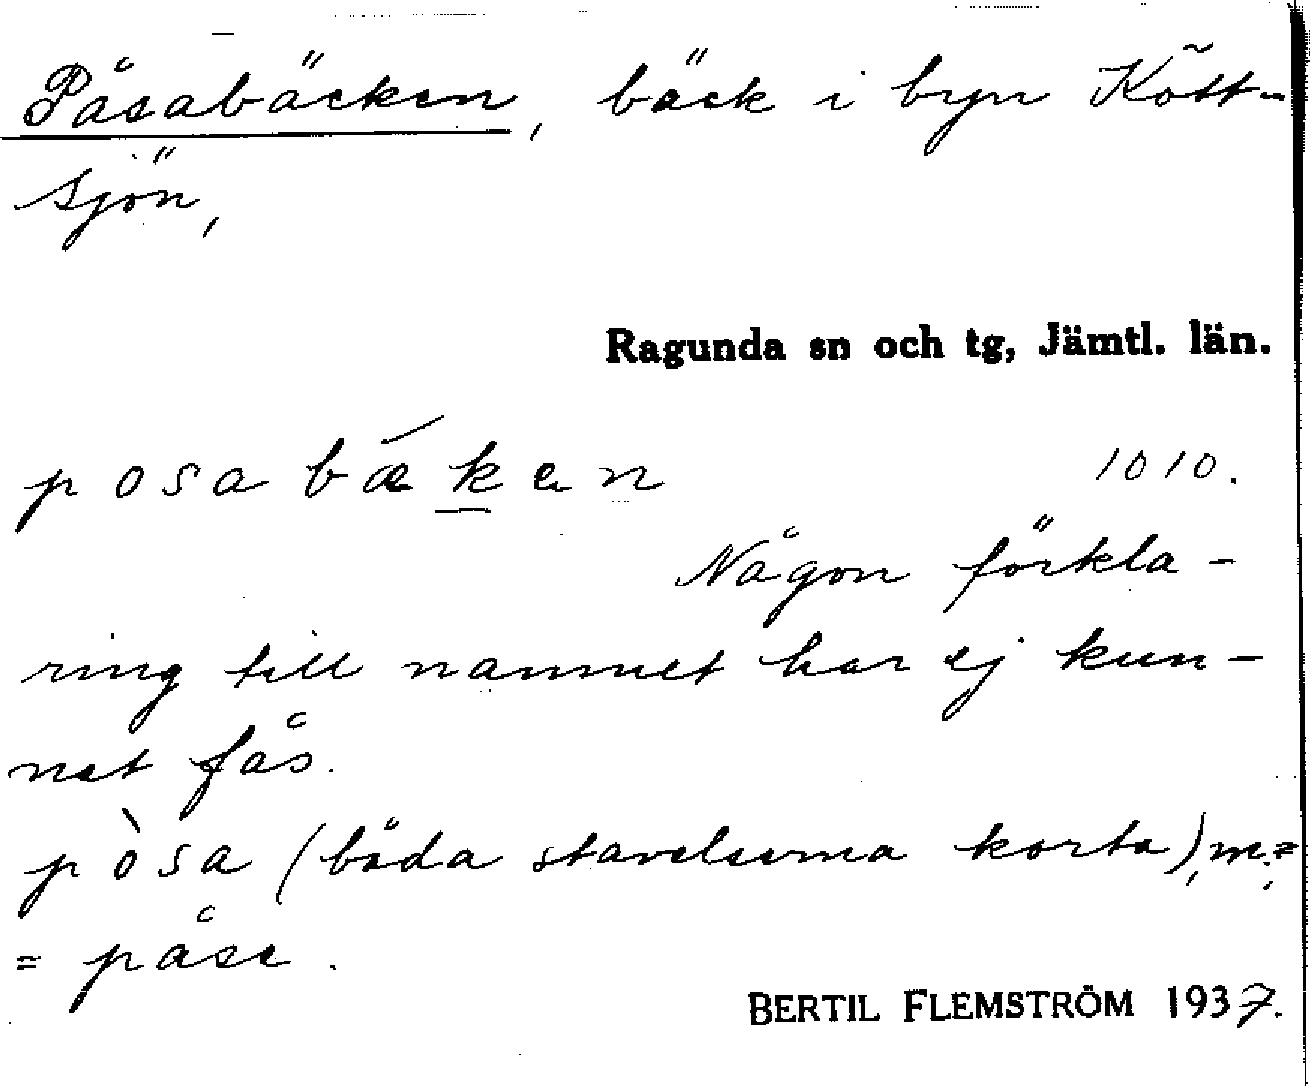 Påsabäcken, bäck i byn Kött-
sjön,
Ragunda sn och tg, Jämtl. län.
posabǽken 1010.
Någon förkla-
ring till namnet har ej kun-
nat fås.
pòsa (båda stavelserna korta), m.; =
= påse.
BERTIL FLEMSTRÖM 1937.